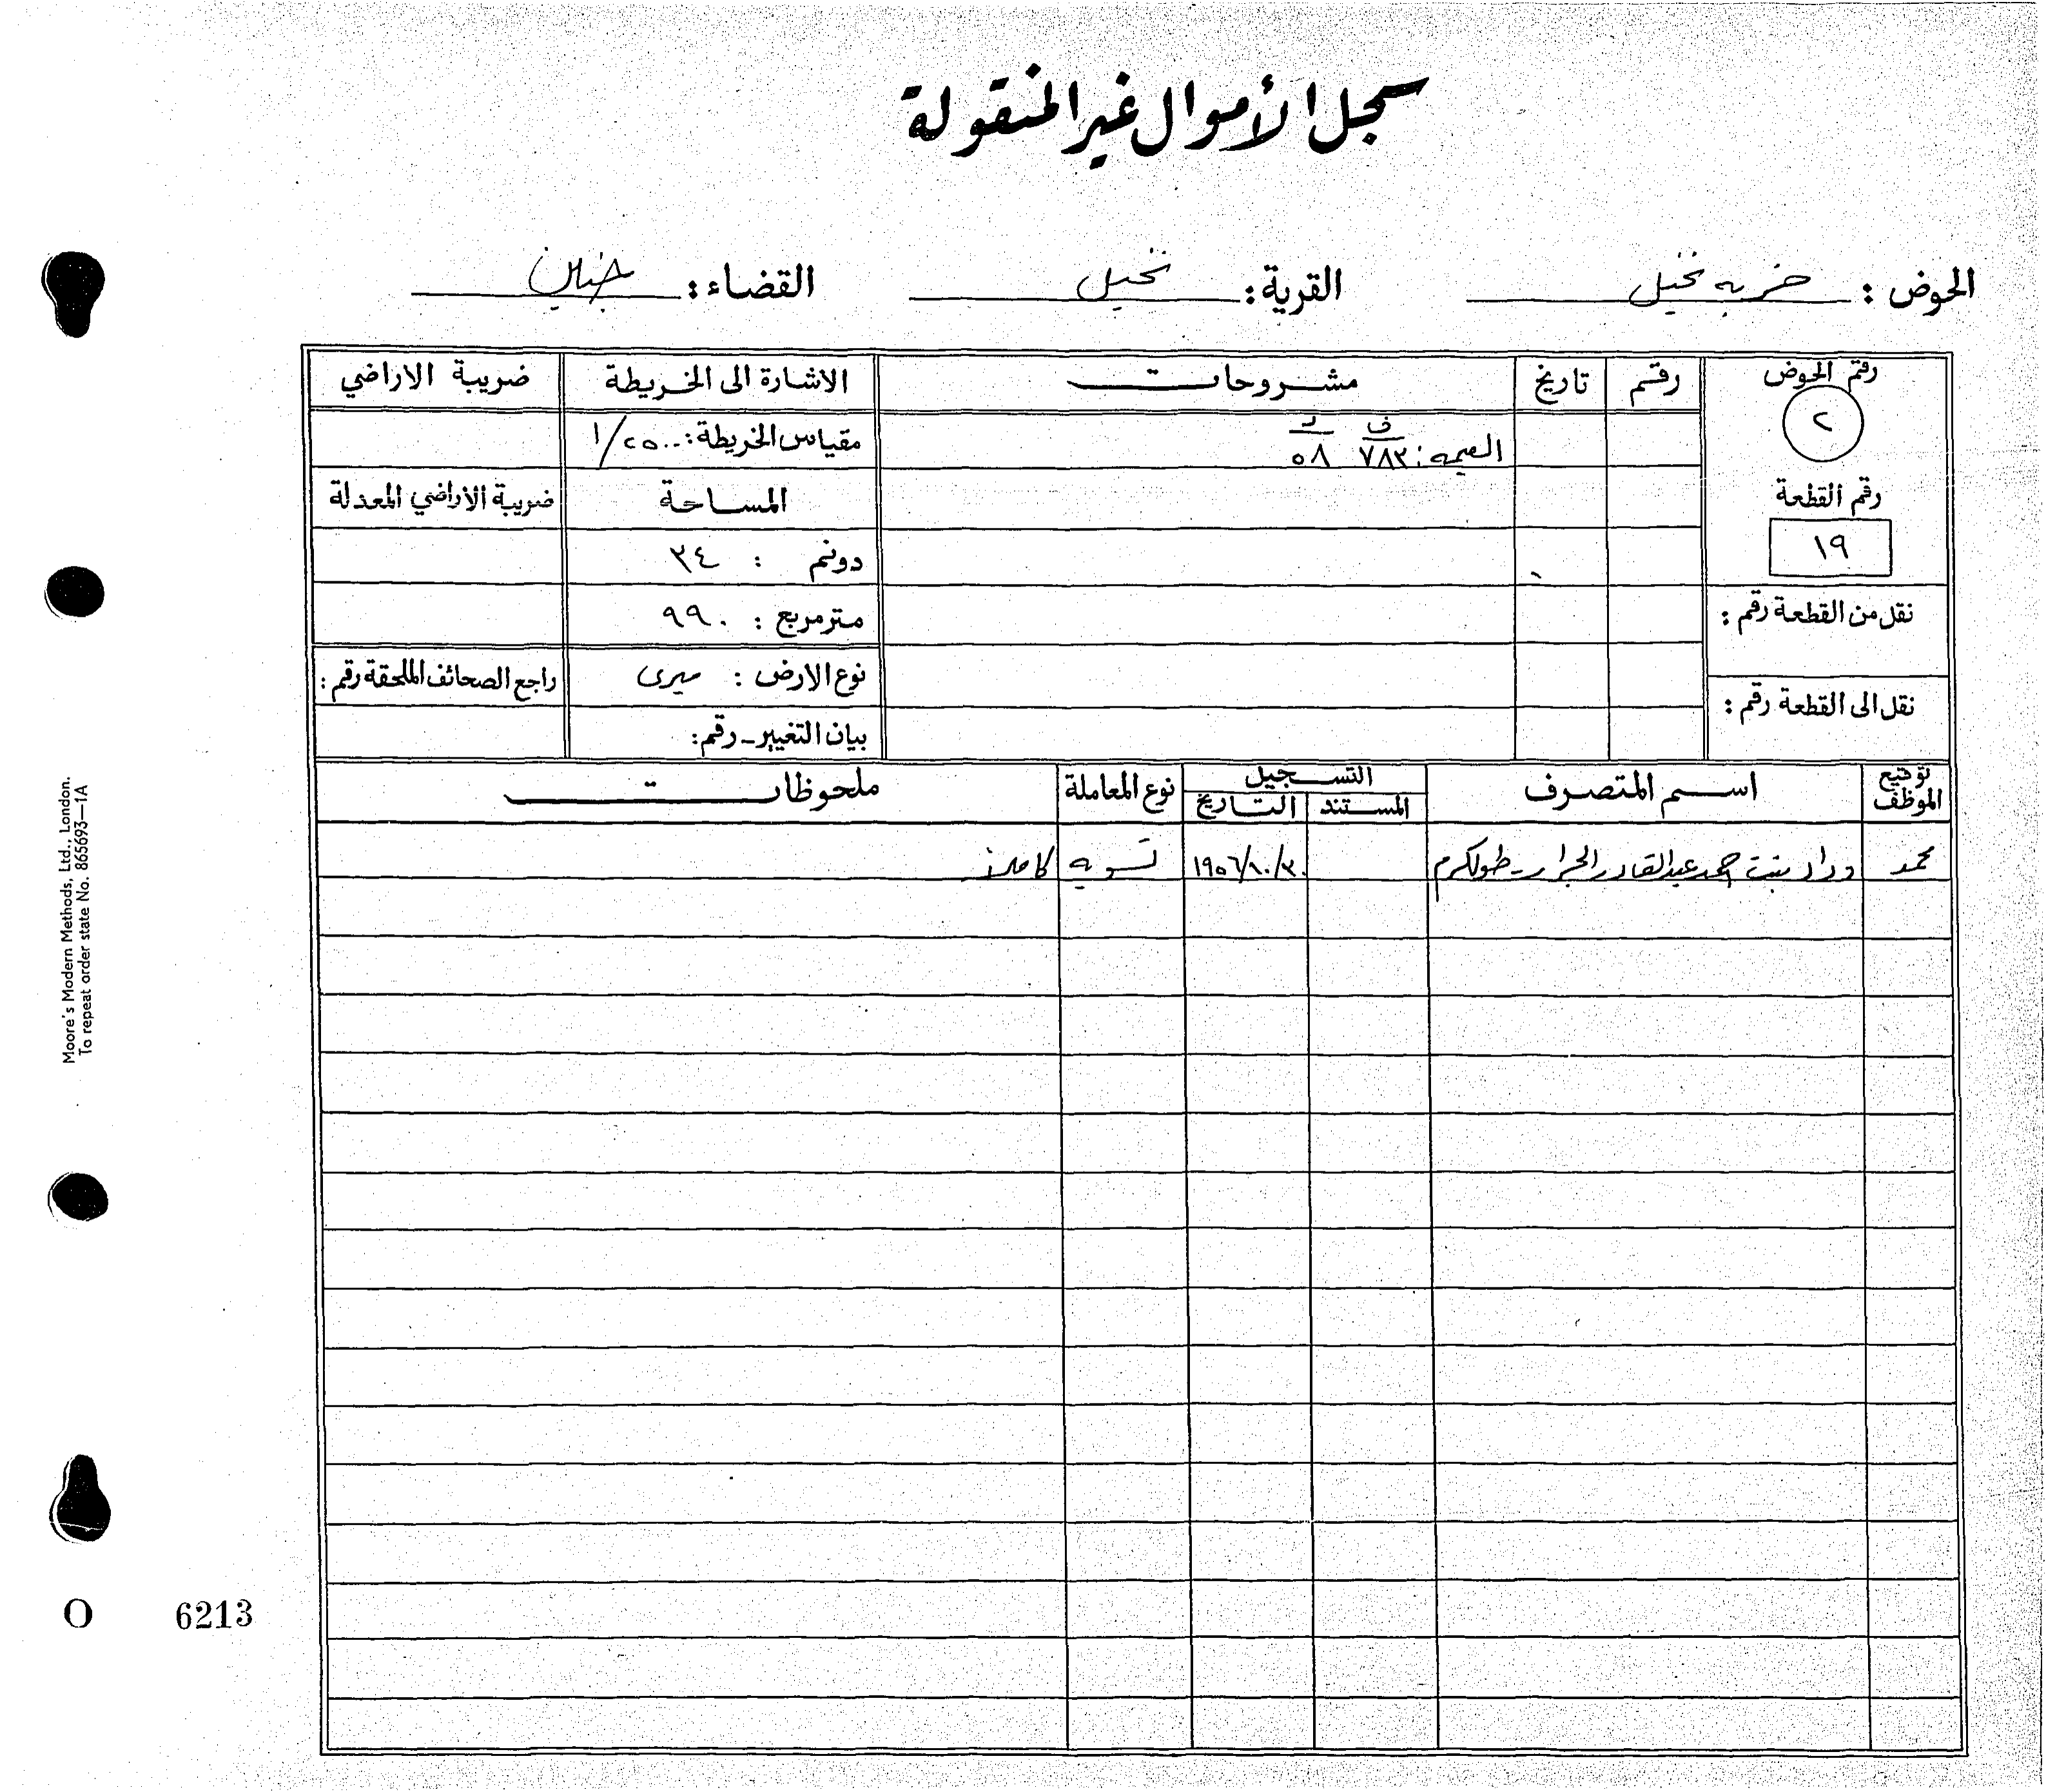 سجل الأموال غير المنقولة
الحوض : خربه نخيل القرية : نخيل القضاء : جنين
رقم الحوض رقم تاريخ مشروحات الاشارة الى الخريطة ضريبة الاراضي
٢
ف د
القيمه : ٧٨٣ ٥٨
مقياس الخريطة : ١/٢٥٠٠
رقم القطعة
المساحة ضريبة الاراضي المعدلة
١٩
دونم : ٣٤
نقل من القطعة رقم :
متر مربع : ٩٩٠
نوع الارض : ميرى راجع الصحائف الملحقة رقم :
نقل الى القطعة رقم :
بيان التغيير - رقم :
توقيع الموظف اسم المتصرف التسجيل نوع المعاملة ملحوظات
المستند التاريخ
محمد وداد بنت احمد عبدالقادر الجرار - طولكرم ١٩٥٦/١٠/٣٠ تسويه كاملا
Moore's Modern Methods, Ltd., London.
To repeat order state No. 865693—1A
O 6213